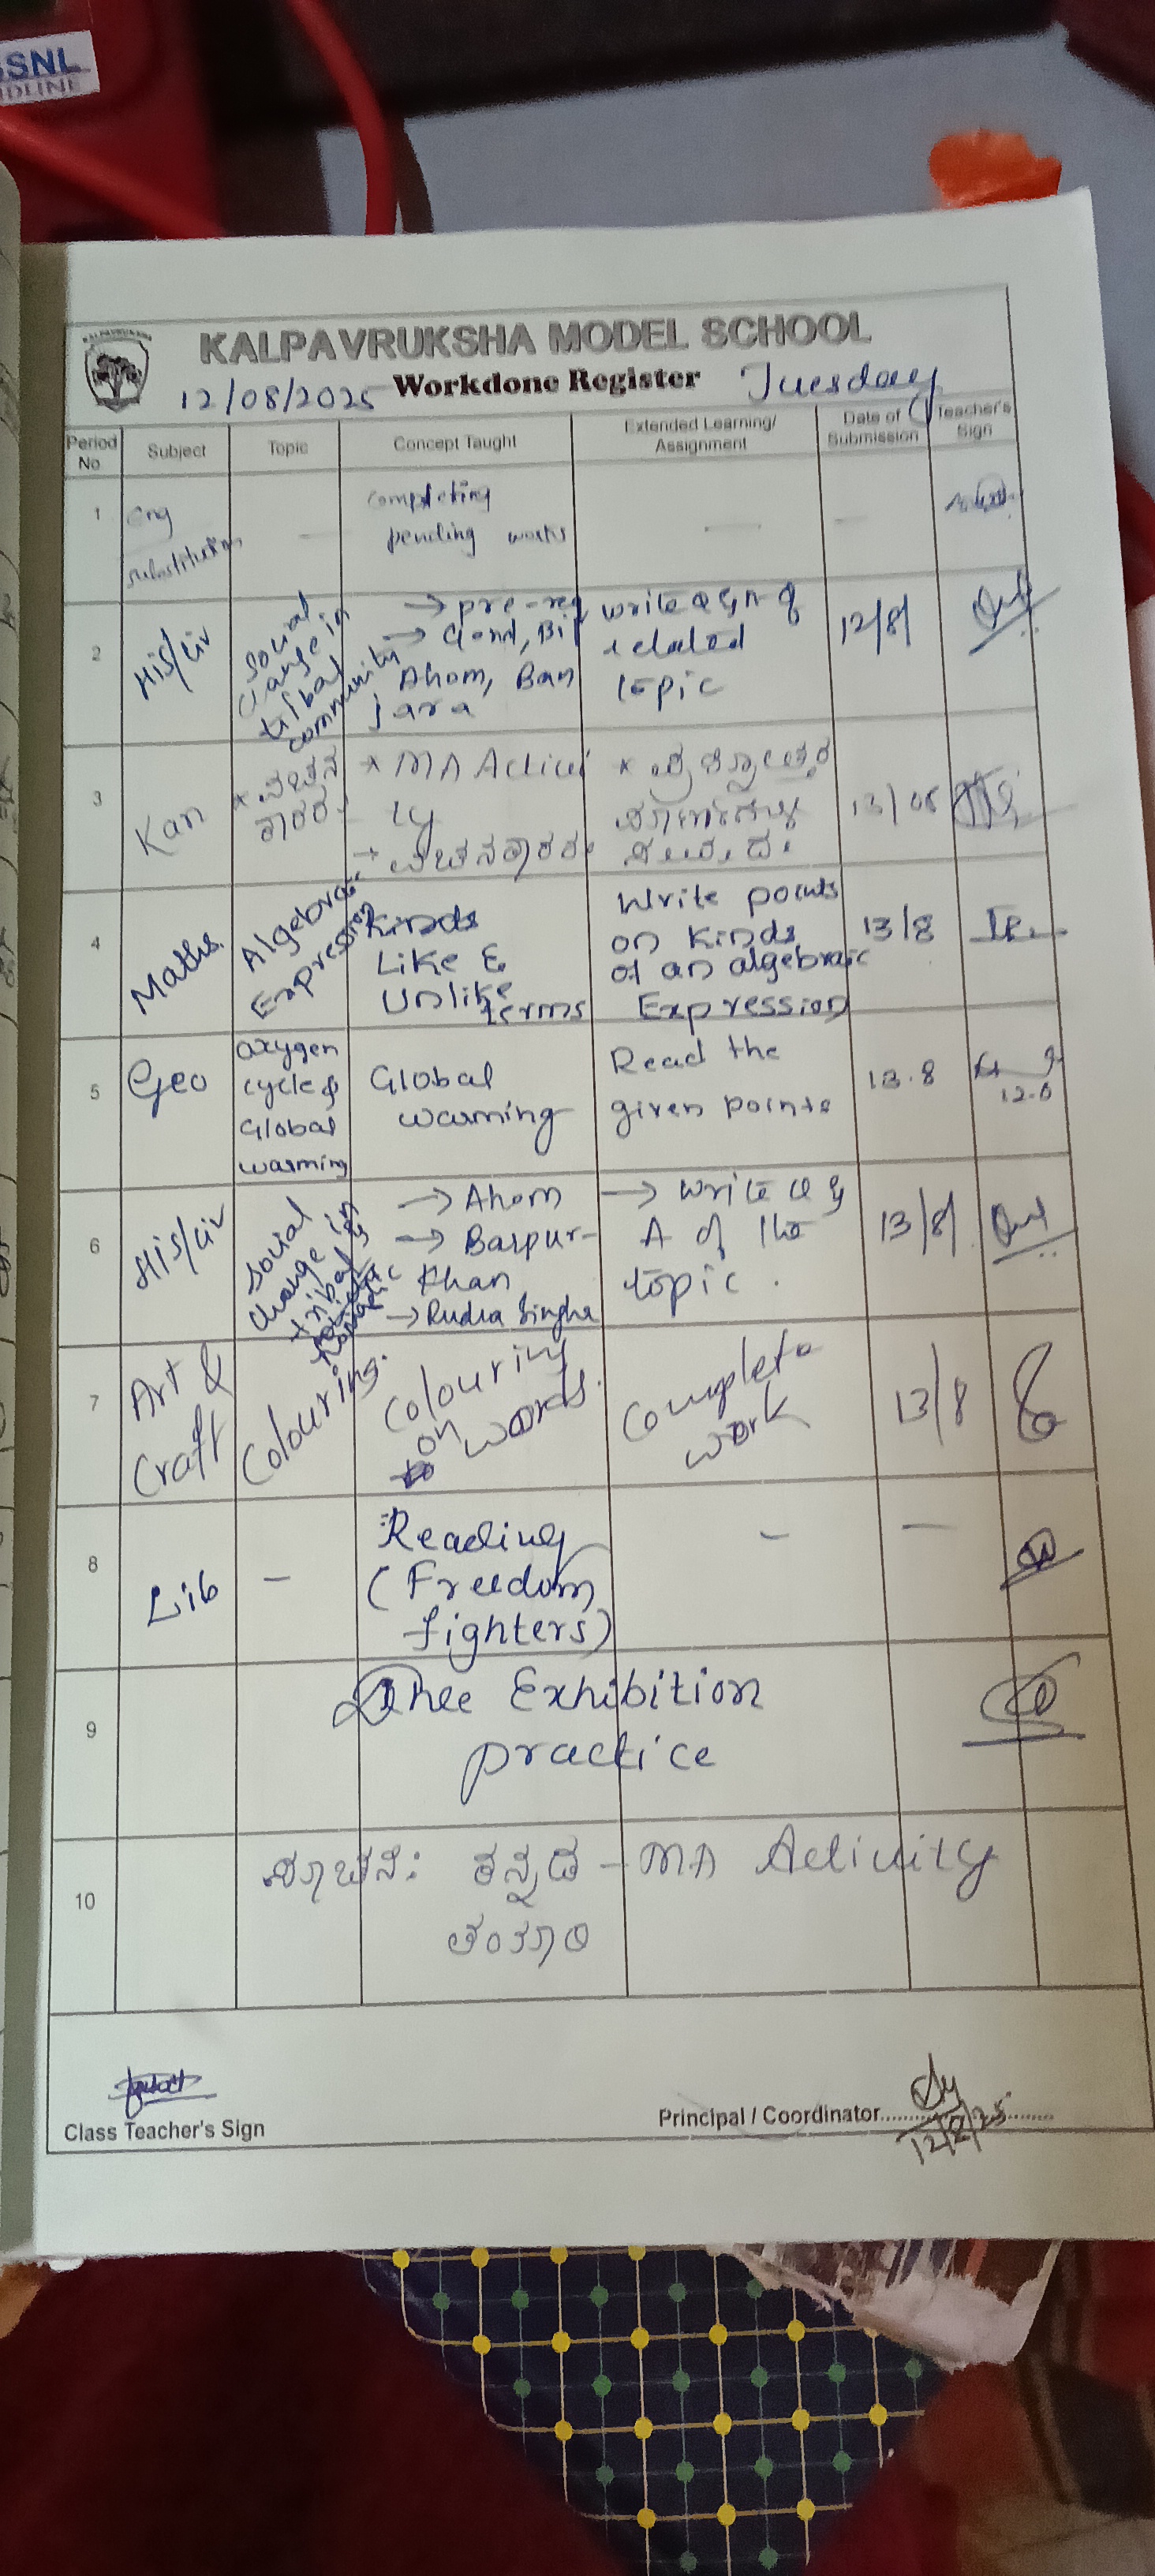 SSNL
DLINE
KALPAVRUKSHA MODEL SCHOOL
12/08/2025 Workdone Register Tuesday
Period No
Subject
Topic
Concept Taught
Extended Learning/ Assignment
Date of Submission
Teacher's Sign
1
Eng
substitution
—
completing
pending works
—
—
2
His/Civ
social
change in
tribal
community
→ pre-req
→ Gond,
Ahom, Ban
jara
write Q & A of
related
topic
12/8/
3
Kan
* ವಚನ
ಕಾರರ
* MA Activi
ty
→ ವಚನಕಾರರ
*
13/08
4
Maths.
Algebraic
Expression
Kinds
Like &
Unlike
terms
Write points
on kinds
of an algebraic
Expression
13/8
5
Geo
oxygen
cycle &
Global
warming
Global
warming
Read the
given points
13.8
6
His/Civ
social
change in
tribal &
→ Ahom
→ Barpur-
Khan
→ Rudra Singha
→ write Q &
A of the
topic.
13/8/
7
Art &
Craft
Colouring.
Colouring
on words.
Complete
work
13/8
8
Lib
—
Reading
(Freedom
fighters)
—
—
9
Exhibition
practice
10
ಕನ್ನಡ - MA Activity
ತಂತ್ರ
Class Teacher's Sign
Principal / Coordinator
12/8/25